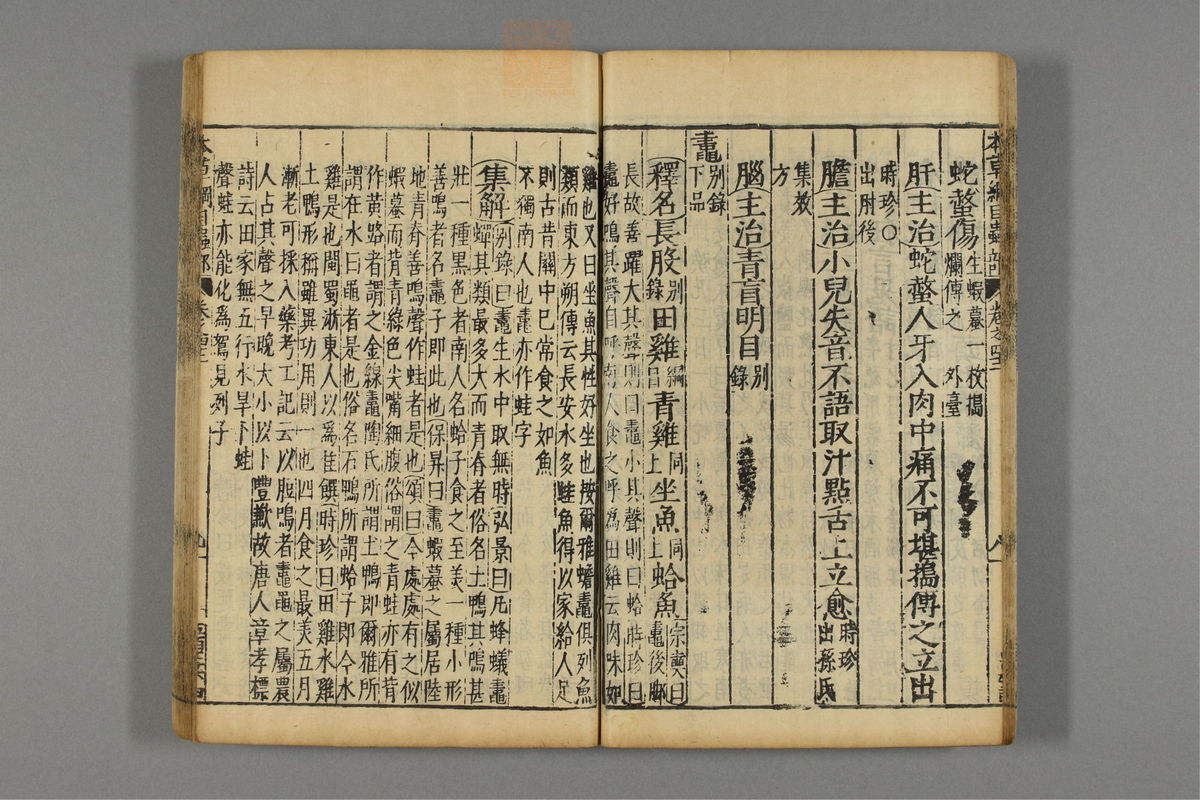 本草綱目蟲部 卷之四十二
蛇螫傷生蝦蟇一枚搗爛傅之外臺
肝主治蛇螫人牙入肉中痛不可堪搗傅之立出
時珍〇出肘後
膽主治小兒失音不語取汁點舌上立愈時珍出孫氏
集效方
腦主治青盲明目別錄
鼃別錄下品
釋名長股別錄田雞綱目青雞同上坐魚同上蛤魚宗奭曰鼃後脚
長故善躍大其聲則曰鼃小其聲則曰蛤時珍曰
鼃好鳴其聲自呼南人食之呼為田雞云肉味如
雞也又曰坐魚其性好坐也按爾雅蟾鼃俱列魚
類而東方朔傳云長安水多鼃魚得以家給人足
則古昔關中已常食之如魚
不獨南人也鼃亦作蛙字
集解別錄曰鼃生水中取無時弘景曰凡蜂蟻鼃
蟬其類最多大而青脊者俗名土鴨其鳴甚
壯一種黑色者南人名蛤子食之至美一種小形
善鳴者名鼃子即此也保昇曰鼃蝦蟇之屬居陸
地青脊善鳴聲作蛙者是也頌曰今處處有之似
蝦蟇而背青綠色尖嘴細腹俗謂之青蛙亦有背
作黃路者謂之金線鼃陶氏所謂土鴨即爾雅所
謂在水曰黽者是也俗名石鴨所謂蛤子即今水
雞是也閩蜀浙東人以為佳饌時珍曰田雞水雞
土鴨形稱雖異功用則一也四月食之最美五月
漸老可採入藥考工記云以脰鳴者鼃黽之屬農
人占其聲之早晚大小以卜豐歉故唐人章孝標
詩云田家無五行水旱卜蛙
聲蛙亦能化為鴽見列子
本草綱目蟲部 卷之四十二